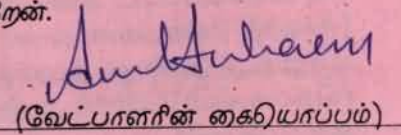 றேன்.
(வேட்பாளரின் கையொப்பம்)